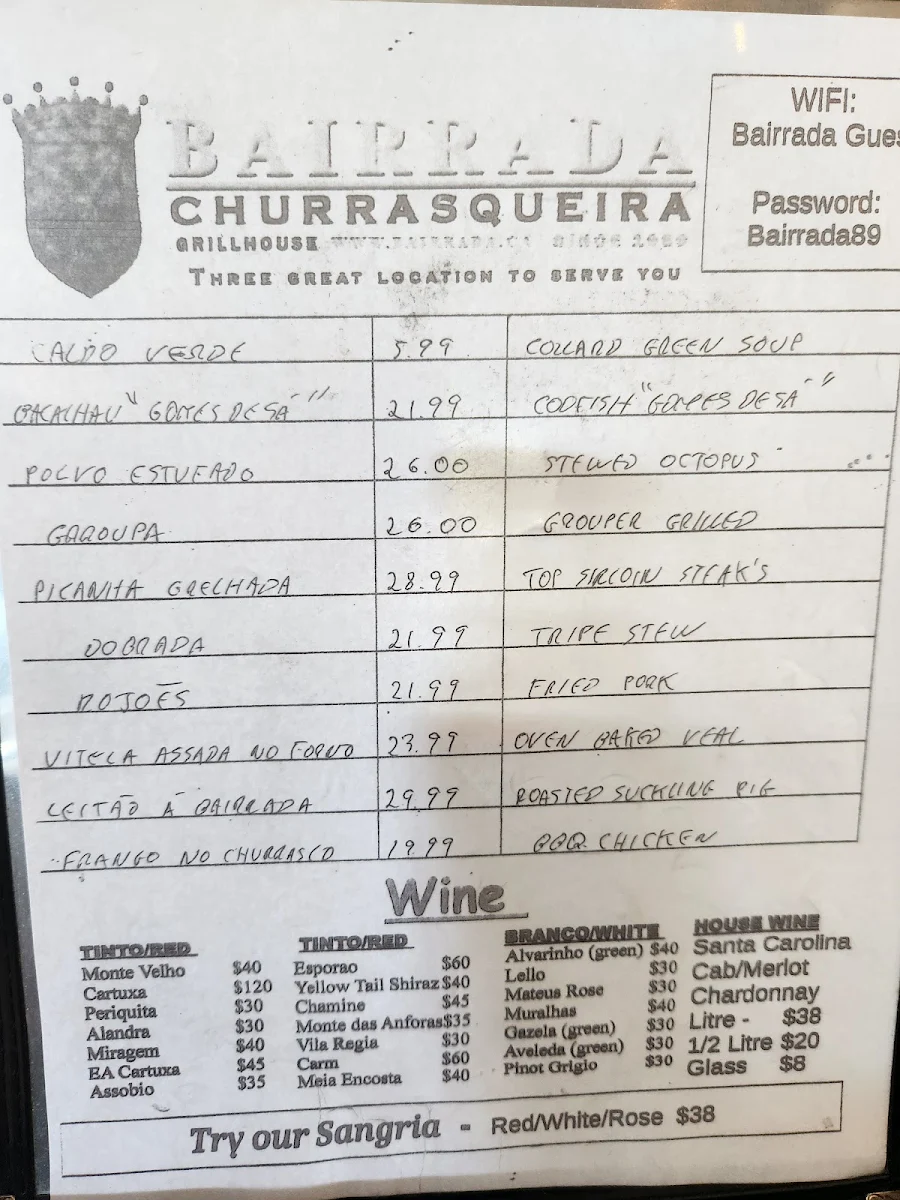 WIFI:
Bairrada Gues
Password:
Bairrada89
BAIRRADA
CHURRASQUEIRA
GRILLHOUSE WWW.BAIRRADA.CA SINCE 1989
THREE GREAT LOCATION TO SERVE YOU
CALDO VERDE 5.99 COLLARD GREEN SOUP
BACALHAU "GOMES DE SÁ" 21.99 CODFISH "GOMES DE SÁ"
POLVO ESTUFADO 26.00 STEWED OCTOPUS
GAROUPA 26.00 GROUPER GRILLED
PICANHA GRELHADA 28.99 TOP SIRLOIN STEAK'S
DOBRADA 21.99 TRIPE STEW
ROJOES 21.99 FRIED PORK
VITELA ASSADA NO FORNO 23.99 OVEN BAKED VEAL
LEITÃO Á BAIRRADA 29.99 ROASTED SUCKLING PIG
FRANGO NO CHURRASCO 19.99 BBQ CHICKEN
Wine
TINTO/RED
Monte Velho $40
Cartuxa $120
Periquita $30
Alandra $30
Miragem $40
EA Cartuxa $45
Assobio $35
TINTO/RED
Esporao $60
Yellow Tail Shiraz $40
Chamine $45
Monte das Anforas $35
Vila Regia $30
Carm $60
Meia Encosta $40
BRANCO/WHITE
Alvarinho (green) $40
Lello $30
Mateus Rose $30
Muralhas $40
Gazela (green) $30
Aveleda (green) $30
Pinot Grigio $30
HOUSE WINE
Santa Carolina
Cab/Merlot
Chardonnay
Litre - $38
1/2 Litre $20
Glass $8
Try our Sangria - Red/White/Rose $38